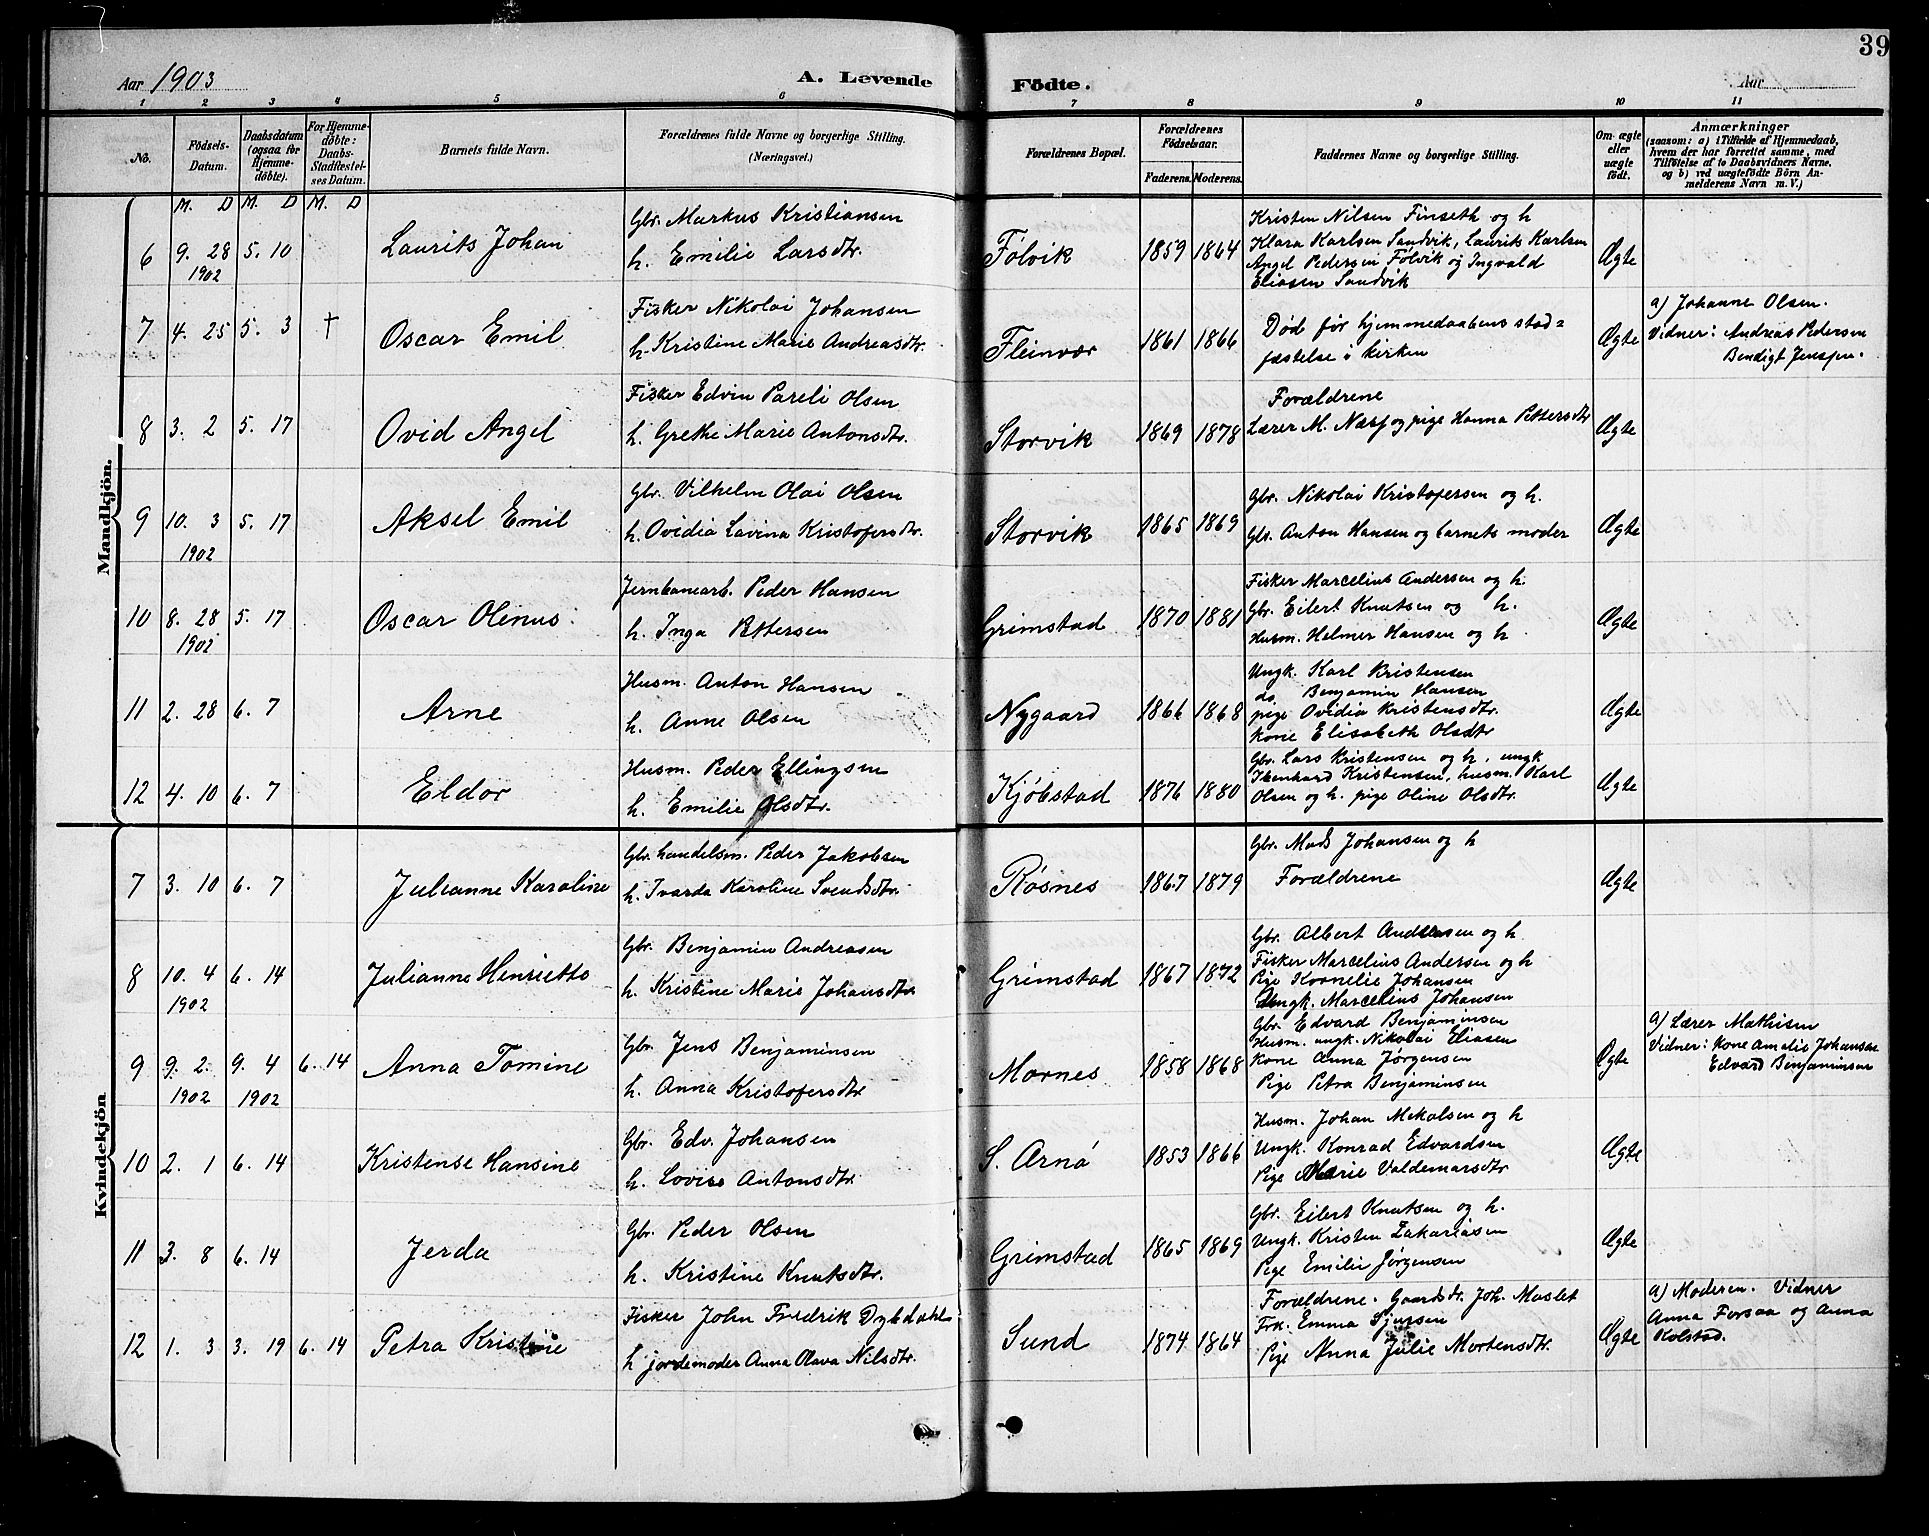 39
Aar 1903
A. Levende
Födte.
Aar
1 2 3 4 5 6 7 8 9 10 11
No.
Födsels-
Datum.
Daabsdatum
(ogsaa for
Hjemme-
döbte).
For Hjemme-
döbte:
Daabs-
Stadfæstel-
ses Datum.
Barnets fulde Navn.
Forældrenes fulde Navne og borgerlige Stilling.
(Næringsvei.)
Forældrenes Bopæl.
Forældrenes
Födselsaar.
Faderens. Moderens.
Faddernes Navne og borgerlige Stilling.
Om ægte
eller
uægte
födt.
Anmærkninger
(saasom: a) i Tilfælde af Hjemmedaab,
hvem der har forrettet samme, med
Tilföielse af to Daabsvidners Navne,
og b) ved uægtefödte Börn An-
melderens Navn m. V.)
M. D M. D M. D
Mandkjön.
6 9. 28 1902 5. 10 Laurits Johan
Gbr. Markus Kristiansen
h. Emilie Larsdtr.
Følvik 1859 1864
Kristen Nilsen Finseth og h
Klara Karlsen Sandvik, Laurits Karlsen
Angel Pedersen Følvik og Ingvald
Eliasen Sandvik
Ægte
7 4. 25 5. 3 † Oscar Emil
Fisker Nikolai Johansen
h. Kristine Marie Andreasdtr.
Fleinvær 1861 1866
Død før hjemmedaabens stad=
fæstelse i kirken
Ægte
a) Johanne Olsen.
Vidner: Andreas Pedersen
Bendigt Jenssen.
8 3. 2 5. 17 Ovid Angel
Fisker Edvin Pareli Olsen
h. Grethe Marie Antonsdtr.
Storvik 1869 1878
Forældrene
Lærer M. Næss og pige Hanna Pettersdtr
Ægte
9 10. 3 1902 5. 17 Aksel Emil
Gbr. Vilhelm Olai Olsen
h. Ovidia Lavina Kristofersdtr.
Storvik 1865 1869
Gbr. Nikolai Kristofersen og h.
Gbr. Anton Hansen og barnets moder
Ægte
10 8. 28 1902 5. 17 Oscar Olenus
Jernbanearb. Peder Hansen
h. Inga Pettersen
Grimstad 1870 1881
Fisker Marcelius Andersen og h.
Gbr. Eilert Knutsen og h.
Husm. Helmer Hansen og h
Ægte
11 2. 28 6. 7 Arne
Husm. Anton Hansen
h. Anne Olsen
Nygaard 1866 1868
Ungk. Karl Kristensen
do Benjamin Hansen
pige Ovidia Kristensdtr.
Kone Elisabeth Olsdtr
Ægte
12 4. 10 6. 7 Eldor
Husm. Peder Ellingsen
h. Emilie Olsdtr.
Kjøbstad 1876 1880
Gbr. Lars Kristensen og h, ungk
Ibenhard Kristensen, husm. Karl
Olsen og h. pige Oline Olsdtr.
Ægte
Kvindekjön
7 3. 10 6. 7 Julianne Karoline
Gbr. handelsm. Peder Jakobsen
h. Ivarda Karoline Svendsdtr.
Røsnes 1867 1879
Gbr. Mads Johansen og h
Forældrene
Ægte
8 10. 4 1902 6. 14 Julianne Henriette
Gbr. Benjamin Andreasen
h. Kristine Marie Johansdtr
Grimstad 1867 1872
Gbr. Albert Andersen og h.
Fisker Marcelius Andersen og h
Pige Kornelie Johansen
Ungk. Marcelius Johansen
Ægte
9 9. 2. 1902 9. 4 1902 6. 14 Anna Tomine
Gbr. Jens Benjaminsen
h. Anna Kristofersdtr
Mornes 1858 1868
Gbr. Edvard Benjaminsen
Husm. ungk. Nikolai Eliasen
Kone Anna Jørgensen
Pige Petra Benjaminsen
Ægte
a) Lærer Mathisen
Vidner: Kone Amalie Johansen
Edvard Benjaminsen
10 2. 1 6. 14 Kristense Hansine
Gbr. Edv. Johansen
h. Lovise Antonsdtr.
S. Arnö 1853 1866
Husm. Johan Mikalsen og h
Ungk. Konrad Edvardsen
Pige Marie Valdemarsdtr
Ægte
11 3. 8 6. 14 Jerda
Gbr. Peder Olsen
h. Kristine Knutsdtr.
Grimstad 1865 1869
Gbr. Eilert Knutsen og h.
Ungk. Kristen Zakariasen
Pige Emilie Jørgensen
Ægte
12 1. 3 3. 19 6. 14 Petra Kristine
Fisker John Fredrik Dybdahl
h jordemoder Anna Olava Nilsdtr.
Sund 1874 1864
Forældrene. Gaardbr. Joh. Maslet
Frk. Emma Sjursen
Pige Anna Julie Mortensdtr.
Ægte
a) Moderen. Vidner
Anna Forsaa og Anna
Kolstad.